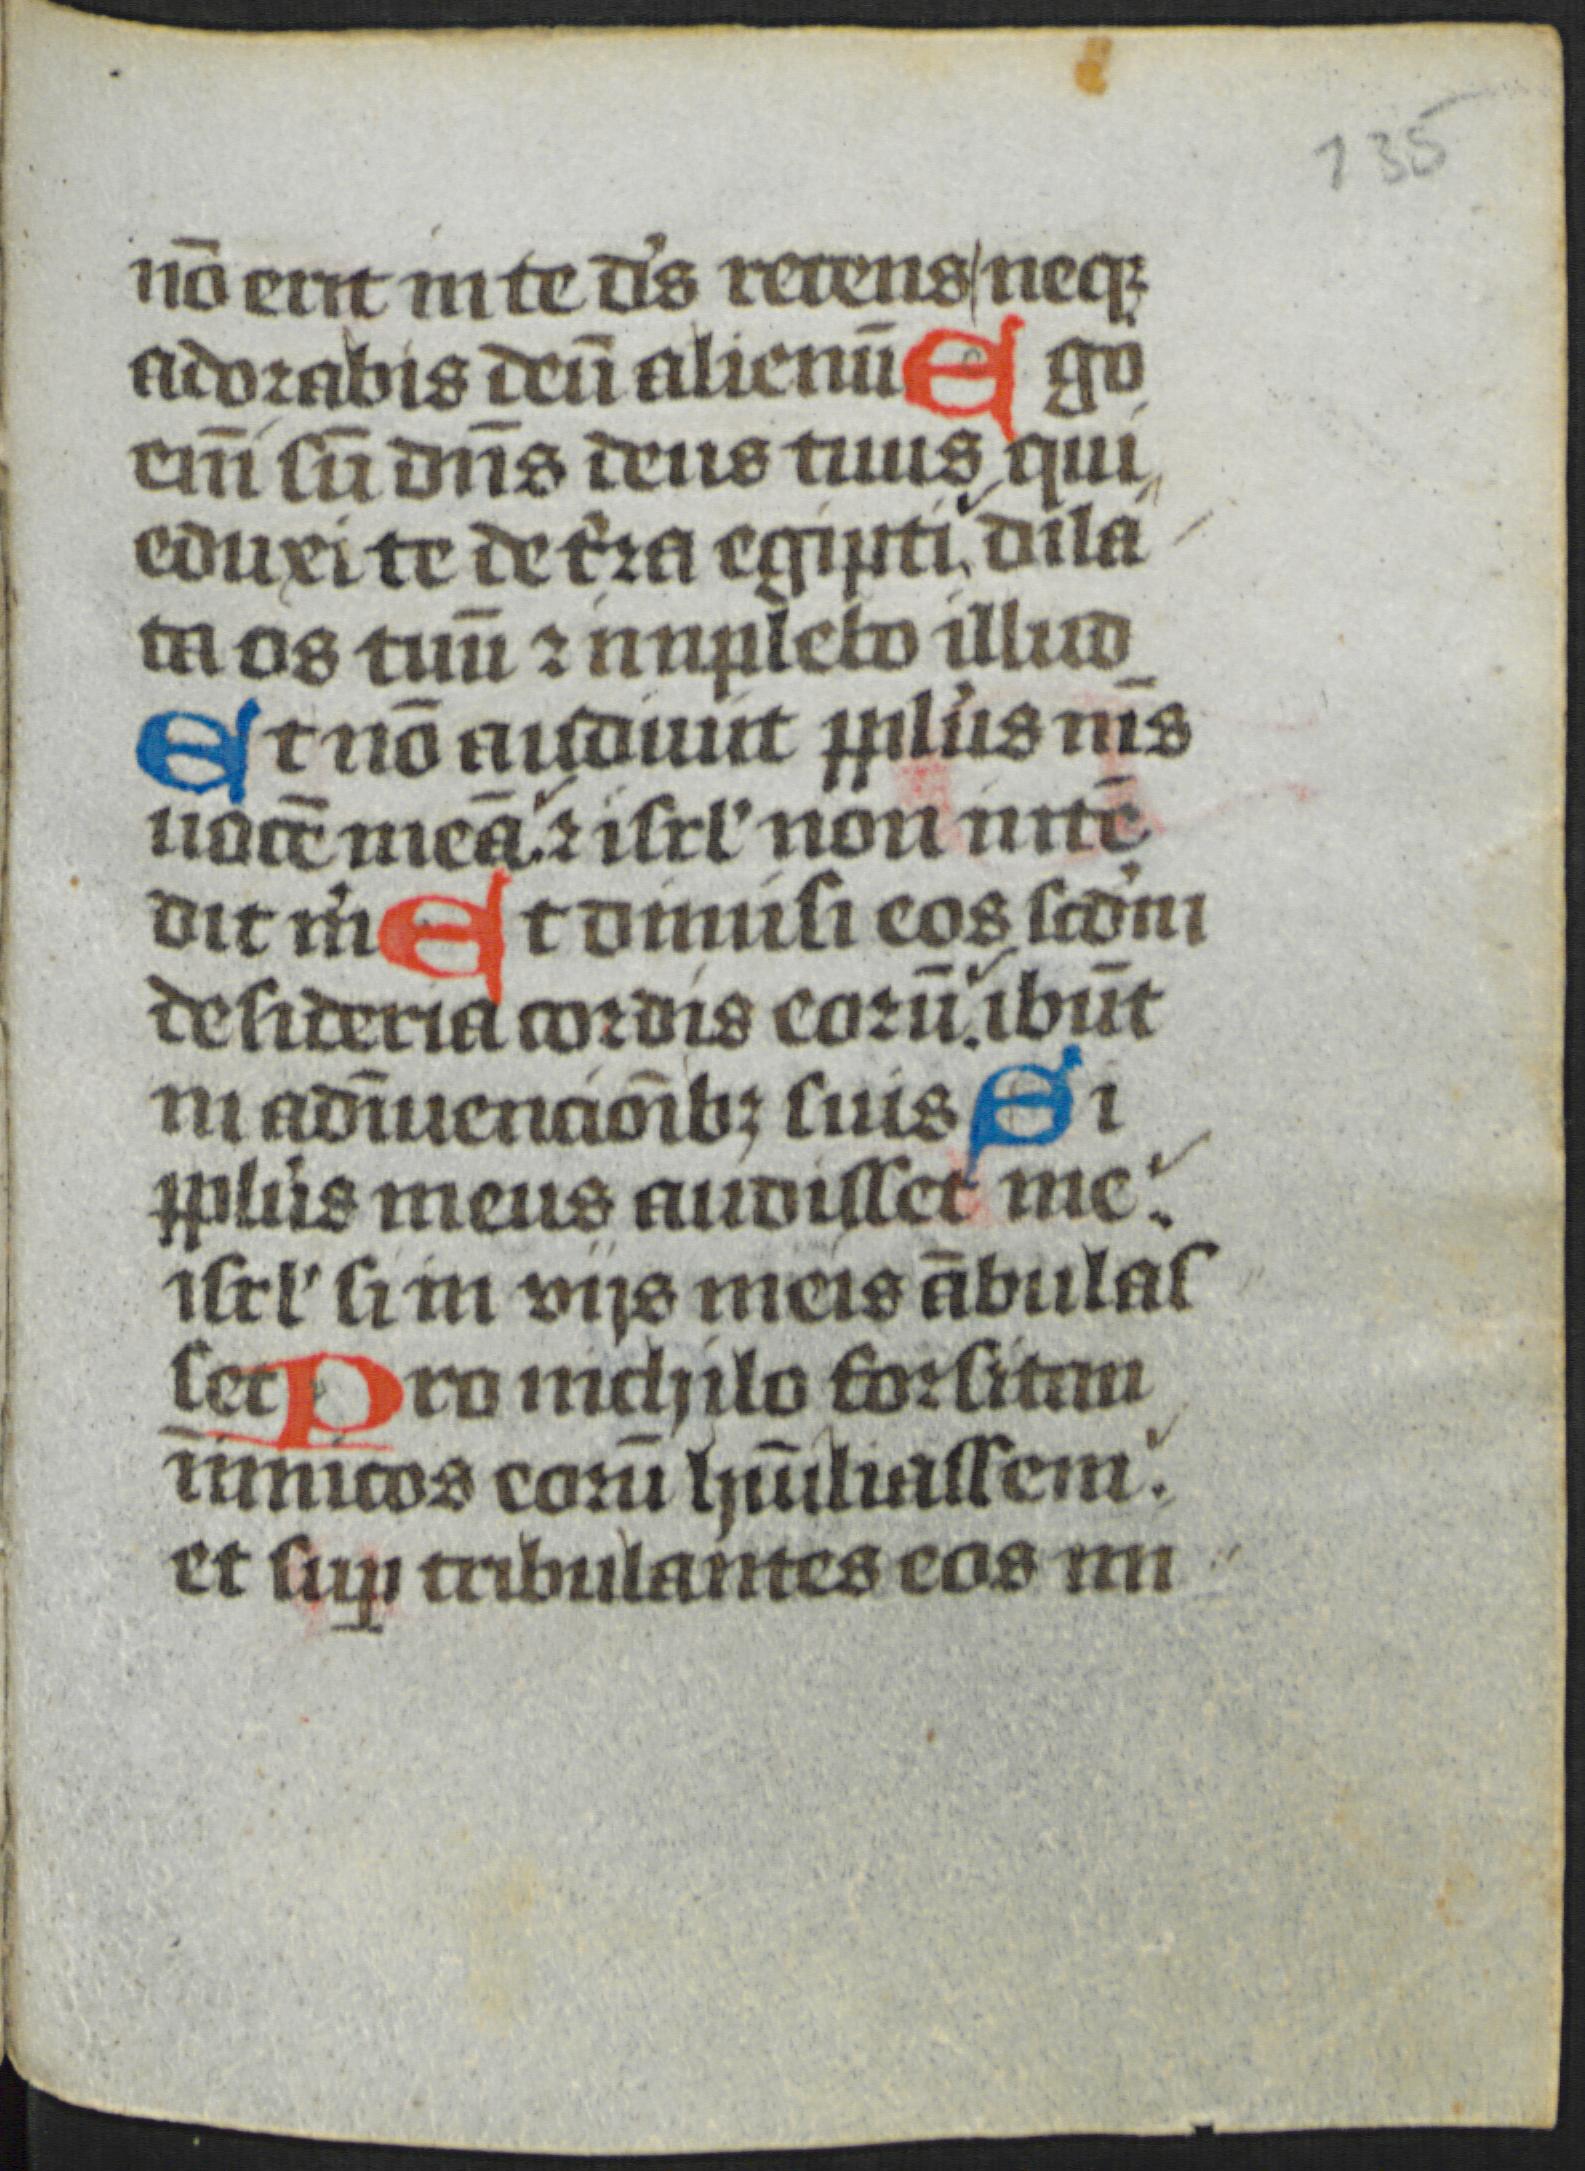 135
nō erit in te d's recens neqꝫ
adorabis deū alienū Ego
em̄ sū dn̄s deus tuus qui
eduxi te de t'ra egipti. dila
ta os tuū ⁊ inplebo illud
Et nō audiuit pplūs m̄s
uocē meā. ⁊ isrl' non intē
dit m' Et dimisi eos scdm
desideria cordis eorū. ibūt
in adīuencōibꝫ suis Si
pplūs meus audisset me.
isrl' si in vijs meis ābulas
set Pro nichilo forsitan
īimicos eorū hūiliassem.
et suꝑ tribulantes eos mi